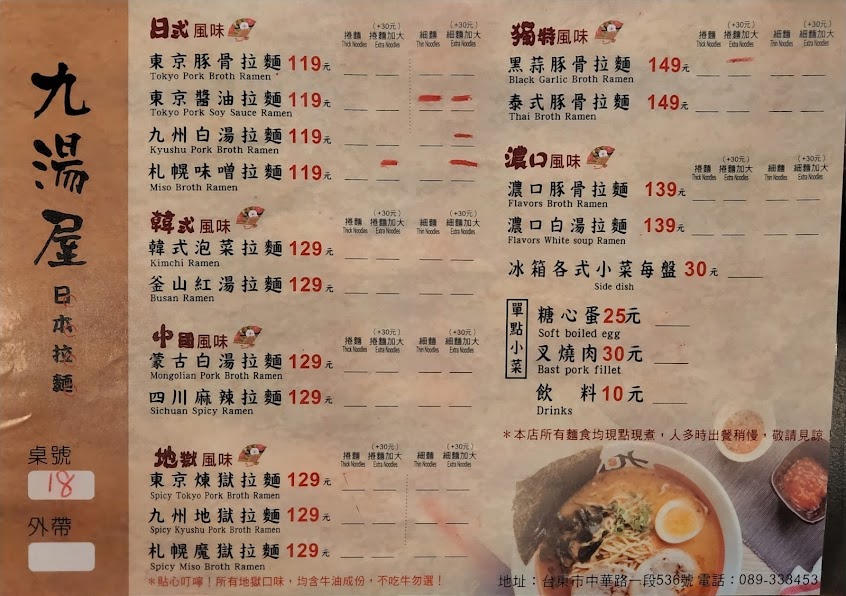 九湯屋
日本拉麵
桌號
18
外帶
日式風味
捲麵 (+30元)捲麵加大 細麵 (+30元)細麵加大
Thick Noodles Extra Noodles Thin Noodles Extra Noodles
東京豚骨拉麵 119元
Tokyo Pork Broth Ramen
東京醬油拉麵 119元
Tokyo Pork Soy Sauce Ramen
九州白湯拉麵 119元
Kyushu Pork Broth Ramen
札幌味噌拉麵 119元
Miso Broth Ramen
韓式風味
捲麵 (+30元)捲麵加大 細麵 (+30元)細麵加大
Thick Noodles Extra Noodles Thin Noodles Extra Noodles
韓式泡菜拉麵 129元
Kimchi Ramen
釜山紅湯拉麵 129元
Busan Ramen
中國風味
捲麵 (+30元)捲麵加大 細麵 (+30元)細麵加大
Thick Noodles Extra Noodles Thin Noodles Extra Noodles
蒙古白湯拉麵 129元
Mongolian Pork Broth Ramen
四川麻辣拉麵 129元
Sichuan Spicy Ramen
地獄風味
捲麵 (+30元)捲麵加大 細麵 (+30元)細麵加大
Thick Noodles Extra Noodles Thin Noodles Extra Noodles
東京煉獄拉麵 129元
Spicy Tokyo Pork Broth Ramen
九州地獄拉麵 129元
Spicy Kyushu Pork Broth Ramen
札幌魔獄拉麵 129元
Spicy Miso Broth Ramen
*點心叮嚀!所有地獄口味,均含牛油成份,不吃牛勿選!
獨特風味
捲麵 (+30元)捲麵加大 細麵 (+30元)細麵加大
Thick Noodles Extra Noodles Thin Noodles Extra Noodles
黑蒜豚骨拉麵 149元
Black Garlic Broth Ramen
泰式豚骨拉麵 149元
Thai Broth Ramen
濃口風味
捲麵 (+30元)捲麵加大 細麵 (+30元)細麵加大
Thick Noodles Extra Noodles Thin Noodles Extra Noodles
濃口豚骨拉麵 139元
Flavors Broth Ramen
濃口白湯拉麵 139元
Flavors White soup Ramen
冰箱各式小菜每盤 30元
Side dish
單點小菜
糖心蛋25元
Soft boiled egg
叉燒肉30元
Bast pork fillet
飲 料10元
Drinks
*本店所有麵食均現點現煮,人多時出餐稍慢,敬請見諒
地址:台東市中華路一段536號 電話:089-333453